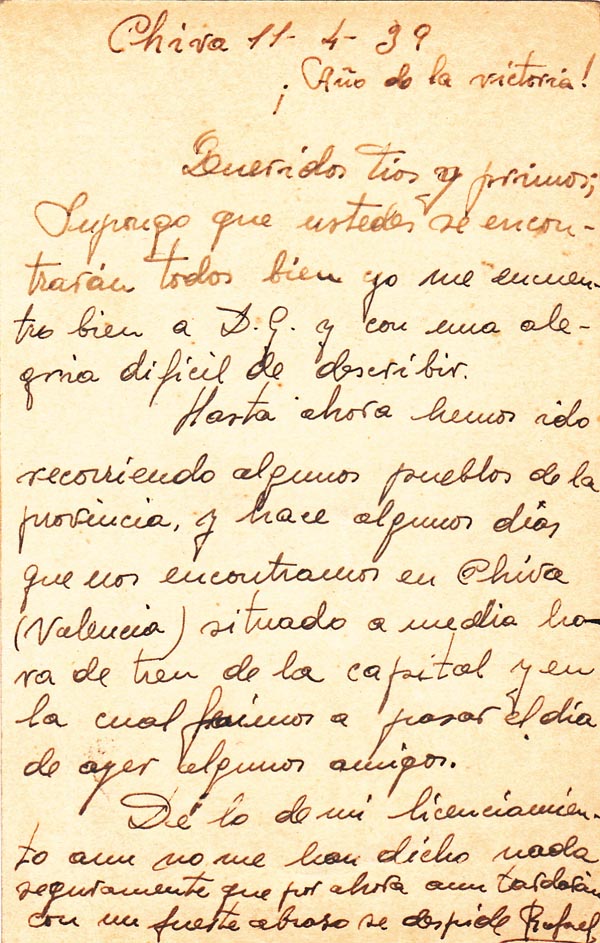 Chiva 11-4-39
¡Año de la victoria!
Queridos tios y primos;
Supongo que ustedes se encon-
trarán todos bien yo me encuen-
tro bien a D.G. y con una ale-
gria dificil de describir.
Hasta ahora hemos ido
recorriendo algunos pueblos de la
provincia, y hace algunos dias
que nos encontramos en Chiva
(Valencia) situado a media ho-
ra de tren de la capital y en
la cual fuimos a pasar el dia
de ayer algunos amigos.
De lo de mi licenciamien-
to aun no me han dicho nada
seguramente que por ahora aun tardarán
con un fuerte abraso se despide Rafael.